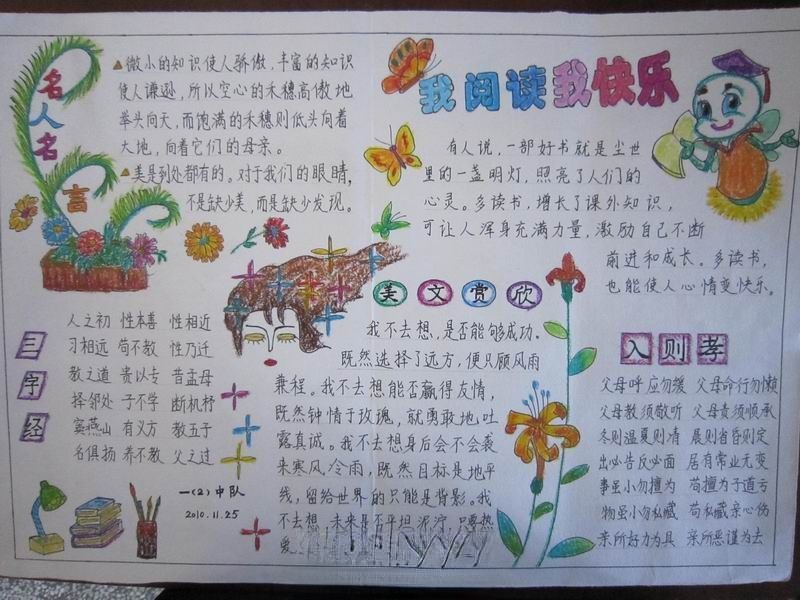 名人名言
▲微小的知识使人骄傲，丰富的知识
使人谦逊，所以空心的禾穗高傲地
举头向天，而饱满的禾穗则低头向着
大地，向着它们的母亲。
▲美是到处都有的。对于我们的眼睛，
不是缺少美，而是缺少发现。
我阅读我快乐
有人说，一部好书就是尘世
里的一盏明灯，照亮了人们的
心灵。多读书，增长了课外知识，
可让人浑身充满力量，激励自己不断
前进和成长。多读书，
也能使人心情变快乐。
三字经
人之初 性本善 性相近
习相远 苟不教 性乃迁
教之道 贵以专 昔孟母
择邻处 子不学 断机杼
窦燕山 有义方 教五子
名俱扬 养不教 父之过
一(2)中队
2010.11.25
美文赏欣
我不去想，是否能够成功。
既然选择了远方，便只顾风雨
兼程。我不去想能否赢得友情，
既然钟情于玫瑰，就勇敢地吐
露真诚。我不去想身后会不会袭
来寒风冷雨，既然目标是地平
线，留给世界的只能是背影。我
不去想 未来是否平坦泥泞 只要热
爱
入则孝
父母呼 应勿缓 父母命行勿懒
父母教 须敬听 父母责须顺承
冬则温 夏则凊 晨则省昏则定
出必告 反必面 居有常业无变
事虽小 勿擅为 苟擅为子道亏
物虽小 勿私藏 苟私藏亲心伤
亲所好 力为具 亲所恶谨为去